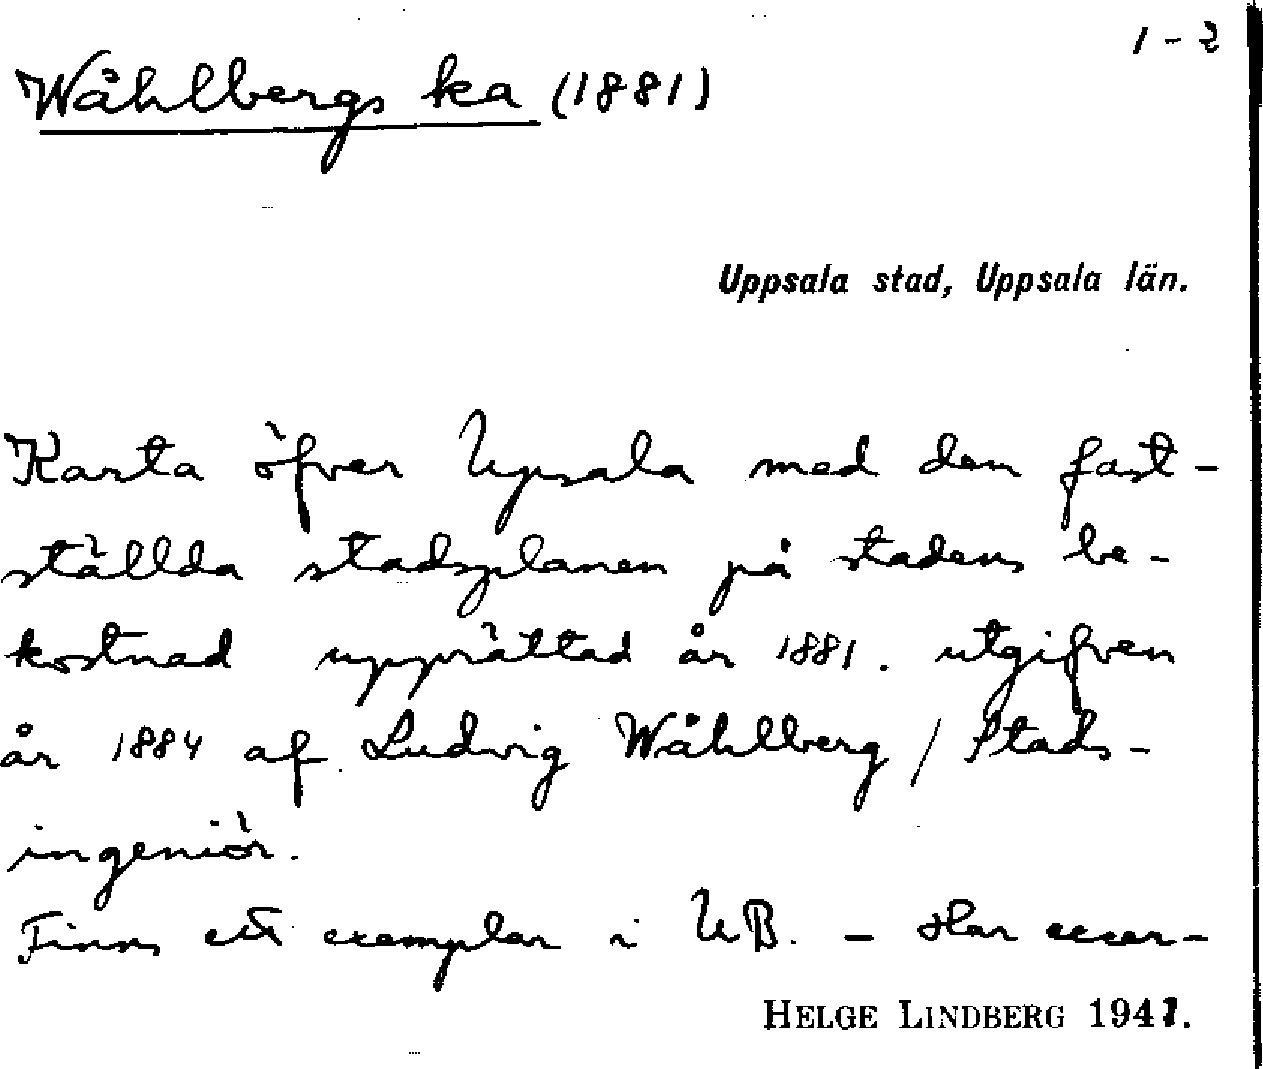 1-2
Wåhlbergs ka (1881)
Uppsala stad, Uppsala län.
Karta öfver Upsala med den fast-
ställda stadsplanen på stadens be-
kostnad upprättad år 1881. utgifven
år 1884 af Ludvig Wåhlberg / Stads-
ingeniör.
Finns ett exemplar i UB. - Har excer-
HELGE LINDBERG 1941.